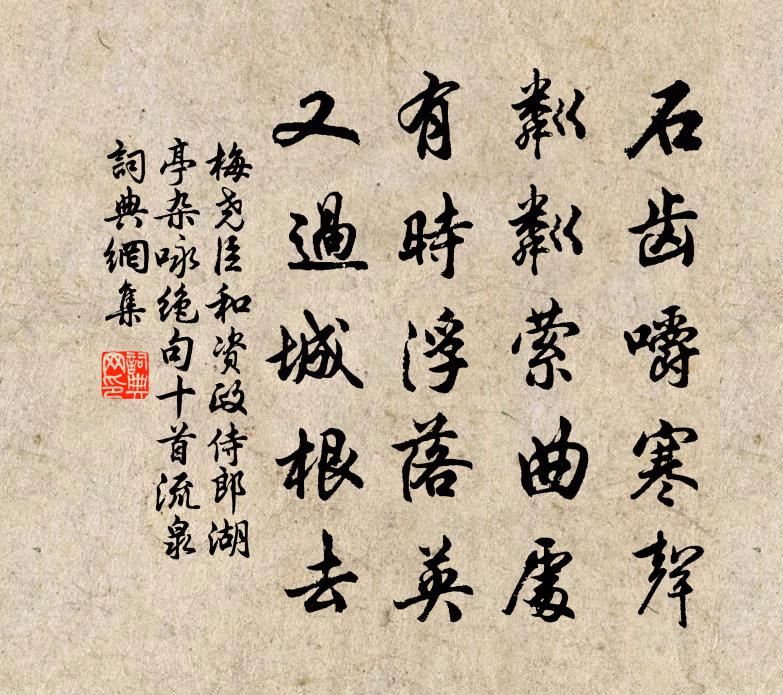 石齿嚼寒聲
粼粼萦曲處
有時浮落英
又過城根去
梅尧臣和资政侍郎湖
亭杂咏绝句十首流泉
詞典網集
詞典网印